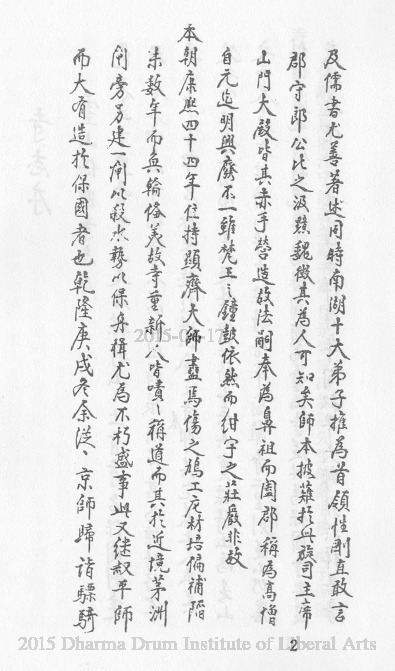 及儒書尤善著述同時南湖十大弟子推為首領性剛直敢言
郡守郎公比之汲黯魏徵其為人可知矣師本披薙於興旋司主席
山門大殿皆其赤手營造故法嗣奉為鼻祖而闔郡稱為高僧
自元迄明興廢不一雖梵王之鐘鼓依然而紺宇之莊嚴非故
本朝康熙四十四年住持顯齊大師盡焉傷之鳩工庀材培偏補陷
未數年而奐輪俻美故寺重新人皆嘖〻稱道而其於近境茅洲
閘旁另建一閘以殺水勢以保舟楫尤為不朽盛事此又繼叙平師
而大有造於保國者也乾隆庚戌冬余從〻京師歸詣驃騎
2
2015-04-17
2015 Dharma Drum Institute of Liberal Arts